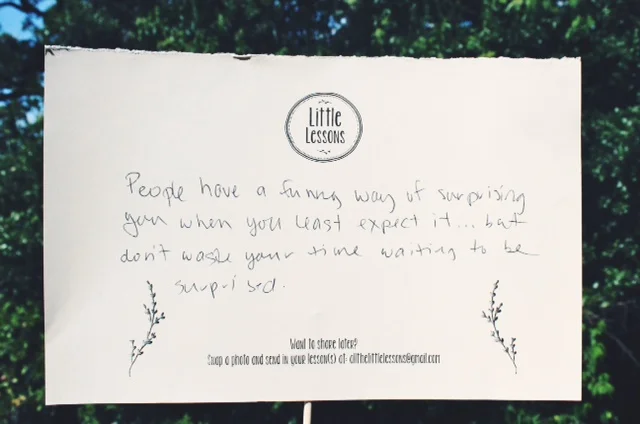 Little
Lessons
People have a funny way of surprising
you when you least expect it... but
don't waste your time waiting to be
surprised.
Want to share later?
Snap a photo and send in your lesson(s) at: allthelittlelessons@gmail.com